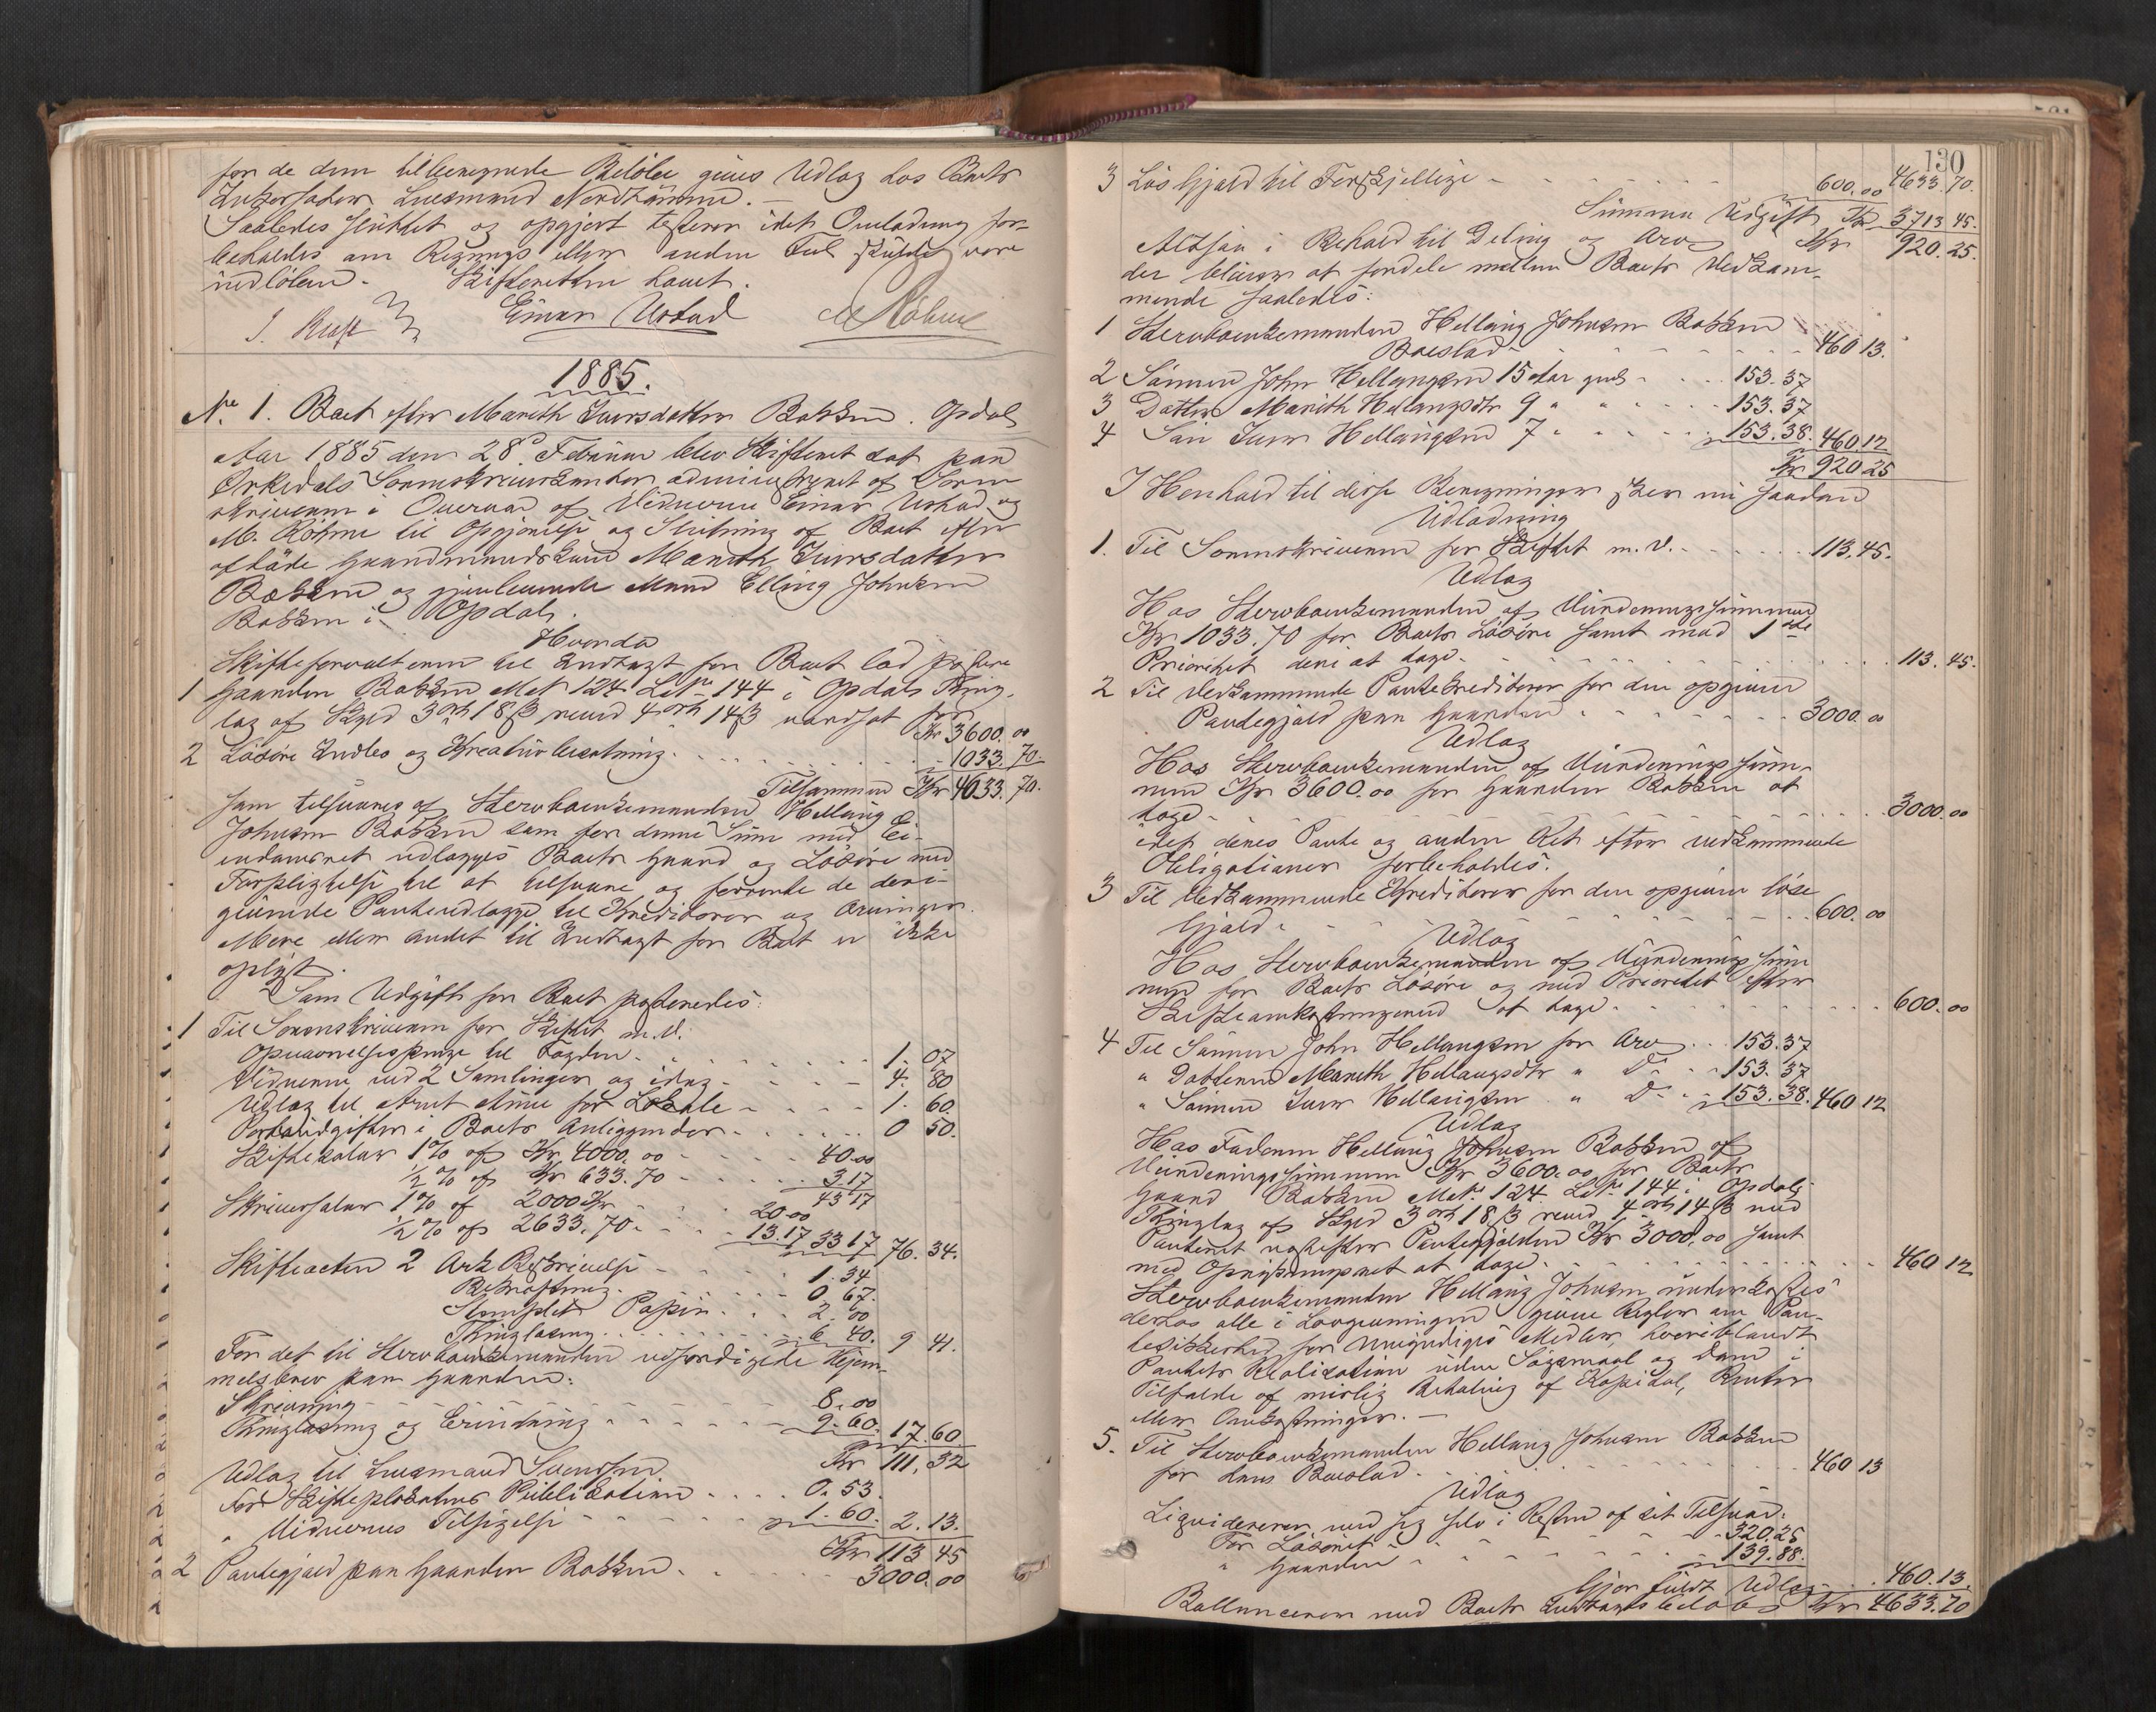 for de dem tilberegnede Beløbe gives Udlæg hos Boets
Inkassator Lensmand Nordhammer. —
Saaledes sluttet og opgjort testerer idet Omladning for-
beholdes om Regnings eller anden Feil skulde være
indløben. Skifteretten hævet.
J. Rust Einar Ustad M Røhme
1885.
No. 1. Boet efter Marith Iversdatter Bakken. Opdal
Aar 1885 den 28de Februar blev Skifteret sat paa
Orkedals Sorenskriverkontor administreret af Soren-
skriveren i Overvær af Vidnerne Einar Ustad og
M. Røhme til Opgjørelse og Slutning af Boet efter
afdøde Gaardmandskone Marith Iversdatter
Bakken og gjenlevende Mand Elling Johnsen
Bakken i Opdal.
Hvorda
Skifteforvalteren til Indtægt for Boet lod postere
1 Gaarden Bakken Mat 124 Litr 144 i Opdals Thing-
lag af Skyld 3 ort 18 ß revid 4 ort 14 ß værdsat for
Kr 3600. 00
2 Løsøre Indbo og Kreaturbesætning . . . 1033. 70
Tilsammen Kr 4633. 70.
som tilsvares af Stervboenkemanden Hellang
Johnsen Bakken som for denne Sum med Ei-
endomsret udlægges Boets Gaard og Løsøre med
Forpligtelse til at tilsvare og forrente de deri
givende Panteudlægge til Kreditorer og Arvinger.
Mere eller andet til Indtægt for Boet er ikke
oplyst.
Som Udgift for Boet posteredes:
1 Til Sorenskriveren for Skiftet m. v.
Opnævnelsespenge til Fogden . . . 1. 07
Vidnerne ved 2 Samlinger og idag . . . 4. 80
Udlæg til Arnt Aune for Lokale - - - 1. 60.
Portoudgifter i Boets Anliggender . . . 0 50.
Skiftesalær 1% af Kr 4000. 00 - - - 40. 00
½ % af Kr 633. 70 - - - 3. 17
43 17
Skriversalær 1% af 2000 Kr - - 20. 00
½ % af 2633. 70 - - - 13. 17 33 17 76. 34.
Skifteacten 2 Ark Beskrivelse - - - 1. 34
Bekræftning . . . 0. 67.
Stemplet Papir . . . 2. 00
Thinglæsning . . . 5. 40. 9 41.
For det til Stervboenkemanden udfærdigede Hjem-
melsbrev paa Gaarden:
Skrivning - - - 8. 00
Thinglæsning og Erindring - - - 9. 60. 17. 60
Kr 111. 32
Udlæg til Lensmand Svendsen
For Skifteplakatens Publikation . . . 0. 53.
" Vidnernes Tilsigelse - - - 1. 60. 2. 13.
Kr 113 45
2 Pantegjæld paa Gaarden Bakken . . . 3000. 00
130
3 Løs Gjæld til Forskjellige - - - 600. 00 4633. 70.
Summa Udgift Kr 3713 45.
Altsaa i Behold til Deling og Arv Kr 920. 25.
der bliver at fordele mellem Boets Vedkom-
mende saaledes:
1 Stervboenkemanden Hellang Johnsen Bakken
Boeslod - - - 460 13.
2 Sønnen John Hellangsen 15 Aar gml - - . 153. 37
3 Datter Marith Hellangsdtr 9 " " - - - 153. 37
4 Søn Iver Hellangsen 7 " - - - 153. 38. 460. 12
Kr 920 25
I Henhold til disse Beregninger sker nu saadan
Udlodning
1. Til Sorenskriveren for Skiftet m. v. - - - 113. 45.
Udlæg
Hos Stervboenkemanden af Vurderingssummen
Kr 1033. 70 for Boets Løsøre samt med 1ste
Prioritet deri at tage - - - 113. 45.
2 Til Vedkommende Pantekreditorer for den opgivne
Pantegjæld paa Gaarden - - - 3000. 00
Udlæg
Hos Stervboenkemanden af Vurderingssum-
men Kr 3600. 00 for Gaarden Bakken at
tage - - - 3000. 00
idet deres Pante og anden Ret efter vedkommende
Obligationer forbeholdes.
3 Til Vedkommende Kreditorer for den opgivne løse
Gjæld - - - 600. 00
Udlæg
Hos Stervboenkemanden af Vurderingssum
men for Boets Løsøre og med Prioritet efter
Skifteomkostningerne at tage - - - 600. 00
4 Til Sønnen John Hellangsen for Arv . . 153. 37
" Datteren Marith Hellangsdtr " Do - - 153. 37
" Sønnen Iver Hellangsen " Do - - 153. 38. 460 12
Udlæg
Hos Faderen Hellang Johnsen Bakken af
Vurderingssummen Kr 3600. 00 for Boets
Gaard Bakken Mat. 124 Litr. 144 i Opdals
Thinglag af Skyld 3 ort 18 ß revid 4 ort 14 ß med
Panteret næstefter Pantegjælden Kr 3000. 00 samt
med Oprykningsret at tage - - - 460 12
Stervboenkemanden Hellang Johnsen underkastes
derhos alle i Lovgivningen givne Regler om Pan-
tesikkerhed for Umyndiges Midler, hvoriblandt
Pantets Realisation uden Søgsmaal og Dom i
Tilfælde af mislig Betaling af Kapital, Renter
eller Omkostninger. —
5. Til Stervboenkemanden Hellang Johnsen Bakken
for hans Boeslod . . . 460 13
Udlæg
Liqviderer med sig selv i Resten af sit Tilsvar:
For Løsøret - - - 320. 25
" Gaarden - - - 139. 88.
Gjør fuldt Udlæg . . . 460. 13.
Ballancerer med Boets Indtægtsbeløb Kr 4633. 70